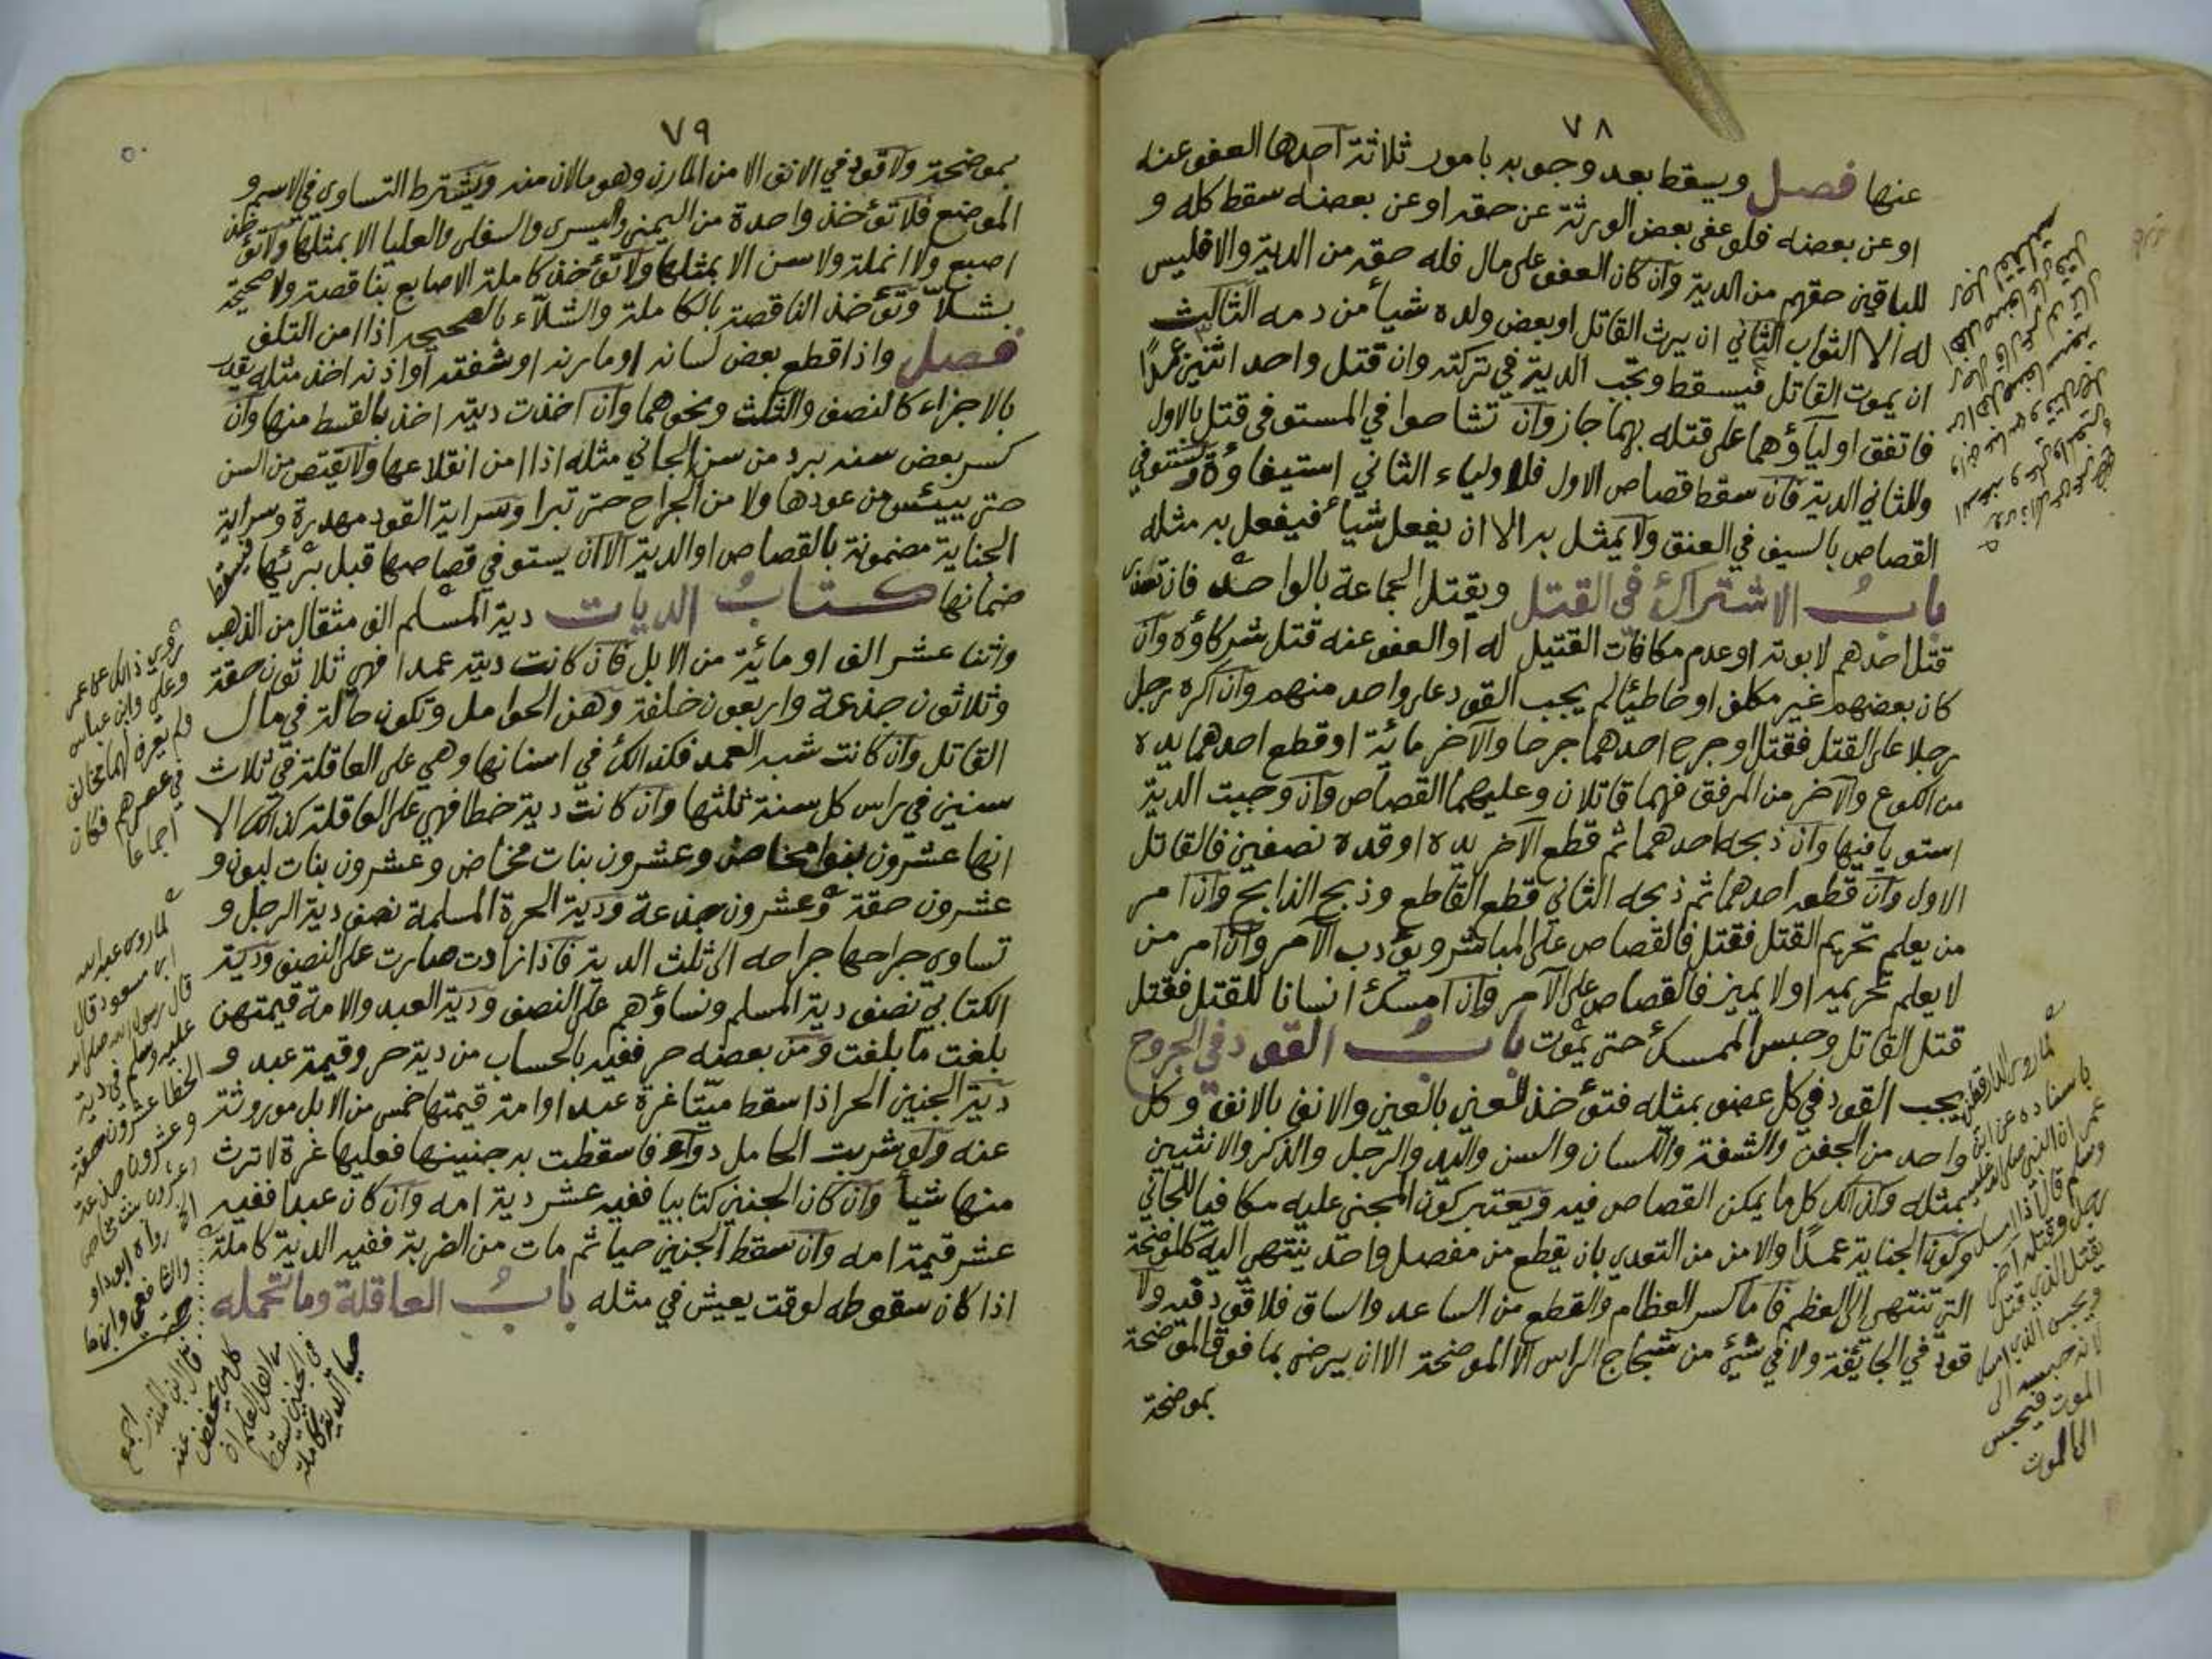 ٧٨
عنها فصل ويسقط بعد وجوبه بامور ثلاثة احدها العفو عنه
او عن بعضه فلو عفى بعض الورثة عن حقه او عن بعضه سقط كله و
للباقين حقهم من الدية وان كان العفو على مال فله حقه من الدية والا فليس
له الا الثواب الثاني ان يرث القاتل او بعض ولده شيأ من دمه الثالث
ان يموت القاتل فيسقط وتجب الدية في تركته وان قتل واحد اثنين عمدًا
فاتفق اولياؤهما على قتله بهما جاز وان تشاحوا في المستوفى قتل بالاول
وللثاني الدية فان سقط قصاص الاول فلاولياء الثاني استيفاؤه ويستوفي
القصاص بالسيف في العنق ولا يمثل به الا ان يفعل شيأ فيفعل به مثله
بابُ الاشتراك في القتل ويقتل الجماعة بالواحد فان تعذر
قتل احدهم لابوته او عدم مكافات القتيل له او العفو عنه قتل شركاؤه وان
كان بعضهم غير مكلف او خاطئا لم يجب القود على واحد منهم وان اكره رجل
رجلا على القتل فقتل او جرح احدهما جرحا والآخر مائة او قطع احدهما يده
من الكوع والآخر من المرفق فهما قاتلان وعليهما القصاص وان وجبت الدية
استويا فيها وان ذبحه احدهما ثم قطع الآخر يده او قده نصفين فالقاتل
الاول وان قطعه احدهما ثم ذبحه الثاني قطع القاطع وذبح الذابح وان امر
من يعلم تحريم القتل فقتل فالقصاص على المباشر ويؤدب الآمر وان امر من
لا يعلم تحريمه او لا يميز فالقصاص على الآمر وان امسك انسانا للقتل فقتل
قتل القاتل وحبس الممسك حتى يموت بابُ القود في الجروح
يجب القود في كل عضو بمثله فتؤخذ العين بالعين والانف بالانف وكل
واحد من الجفن والشفة واللسان والسن واليد والرجل والذكر والانثيين
بمثله وكذالك كل ما يمكن القصاص فيه ويعتبر كون المجني عليه مكافيا للجاني
وكون الجناية عمدًا والامن من التعدي بان يقطع من مفصل او حد ينتهي اليه كالموضحة
التي تنتهي الى العظم فاما كسر العظام والقطع من الساعد والساق فلا قود فيه ولا
قود في الجائفة ولا في شيء من شجاج الراس الا الموضحة الا ان يرضى بما فوق الموضحة
بموضحة
لما روى الدارقطني
باسناده عن ابن
عمر ان النبي صلى الله عليه
وسلم قال اذا امسك
الرجل وقتله آخر
يقتل الذي قتل
ويحبس الذي امسك
لانه حبسه الى
الموت فيحبس
الى الموت
٧٩
بموضحة ولا قود في الانف الا من المارن وهو ما لان منه ويشترط التساوي في الاسم و
الموضع فلا تؤخذ واحدة من اليمنى واليسرى والسفلى والعليا الا بمثلها ولا تؤخذ
اصبع ولا انملة ولا سن الا بمثلها ولا تؤخذ كاملة الاصابع بناقصة ولا صحيحة
بشلاّ وتؤخذ الناقصة بالكاملة والشلاّء بالصحيحه اذا امن التلف
فصل واذا قطع بعض لسانه او مارنه او شفته او اذنه اخذ مثله يقدر
بالاجزاء كالنصف والثلث ونحوهما وان اخذت ديته اخذ بالقسط منها وان
كسر بعض سنه برد من سن الجاني مثله اذا امن انقلاعها ولا يقتص من السن
حتى ييئس من عودها ولا من الجراح حتى تبرا وسراية القود مهدرة وسراية
الجناية مضمونة بالقصاص او الدية الا ان يستوفي قصاصها قبل برئها فيسقط
ضمانها كتابُ الديات دية المسلم الف مثقال من الذهب
واثنا عشر الف او مائة من الابل فان كانت دية عمدا فهي ثلاثون حقة
وثلاثون جذعة واربعون خلفة وهن الحوامل وتكون حالّة في مال
القاتل وان كانت شبه العمد فكذالك في اسنانها وهي على العاقلة في ثلاث
سنين في راس كل سنة ثلثها وان كانت دية خطا فهي على العاقلة كذالك الا
انها عشرون بنوا مخاض وعشرون بنات مخاض وعشرون بنات لبون و
عشرون حقة وعشرون جذعة ودية الحرة المسلمة نصف دية الرجل و
تساوي جراحها جراحه الى ثلث الدية فاذا زادت صارت على النصف ودية
الكتابي نصف دية المسلم ونساؤهم على النصف ودية العبد والامة قيمتهن
بلغت ما بلغت ومن بعضه حر ففيه بالحساب من دية حر وقيمة عبد و
دية الجنين الحر اذا سقط ميتا غرة عبد او امة قيمتها خمس من الابل موروثة
عنه ولو شربت الحامل دواء فاسقطت به جنينها فعليها غرة لا ترث
منها شيأ وان كان الجنين كتابيا ففيه عشر دية امه وان كان عبدا ففيه
عشر قيمة امه وان سقط الجنين حيا ثم مات من الضربة ففيه الدية كاملة
اذا كان سقوطه لوقت يعيش في مثله بابُ العاقلة وما تحمله
روي ذالك عن عمر
وعلي وابن عباس
ولم يعرف لهم مخالف
في عصرهم فكان
اجماعا
لما روى عبد الله
ابن مسعود قال
قال رسول الله صلى الله
عليه وسلم في دية
الخطا عشرون حقة
وعشرون جذعة
وعشرون بنت مخاض
الخ رواه ابو داو
والشافعي وابن ما
قال ابن المنذر اجمع
كل من نحفظ عنه
من اهل العلم ان
في الجنين يسقط
حيا الدية كاملة